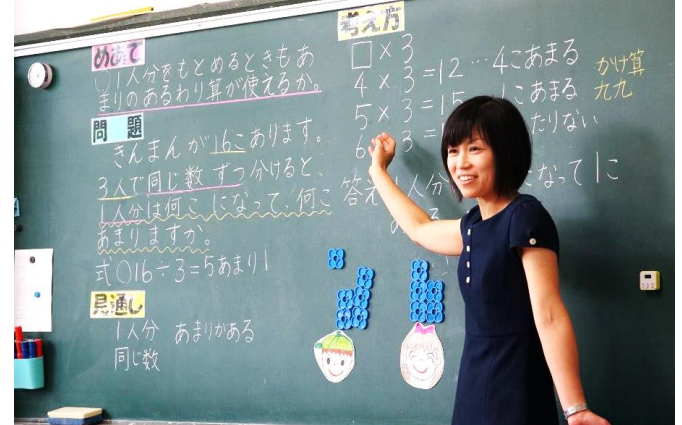 めあて
〇1人分をもとめるときもあ
まりのあるわり算が使えるか。
問題
きんまんが16こあります。
3人で同じ数ずつ分けると、
1人分は何こになって、何こ
あまりますか。
式〇16÷3=5あまり1
見通し
1人分 あまりがある
同じ数
考え方
□×3
4×3=12…4こあまる
5×3=15 こあまる
6 3= たりない
かけ算
九九
答え 1人分 になって1こ